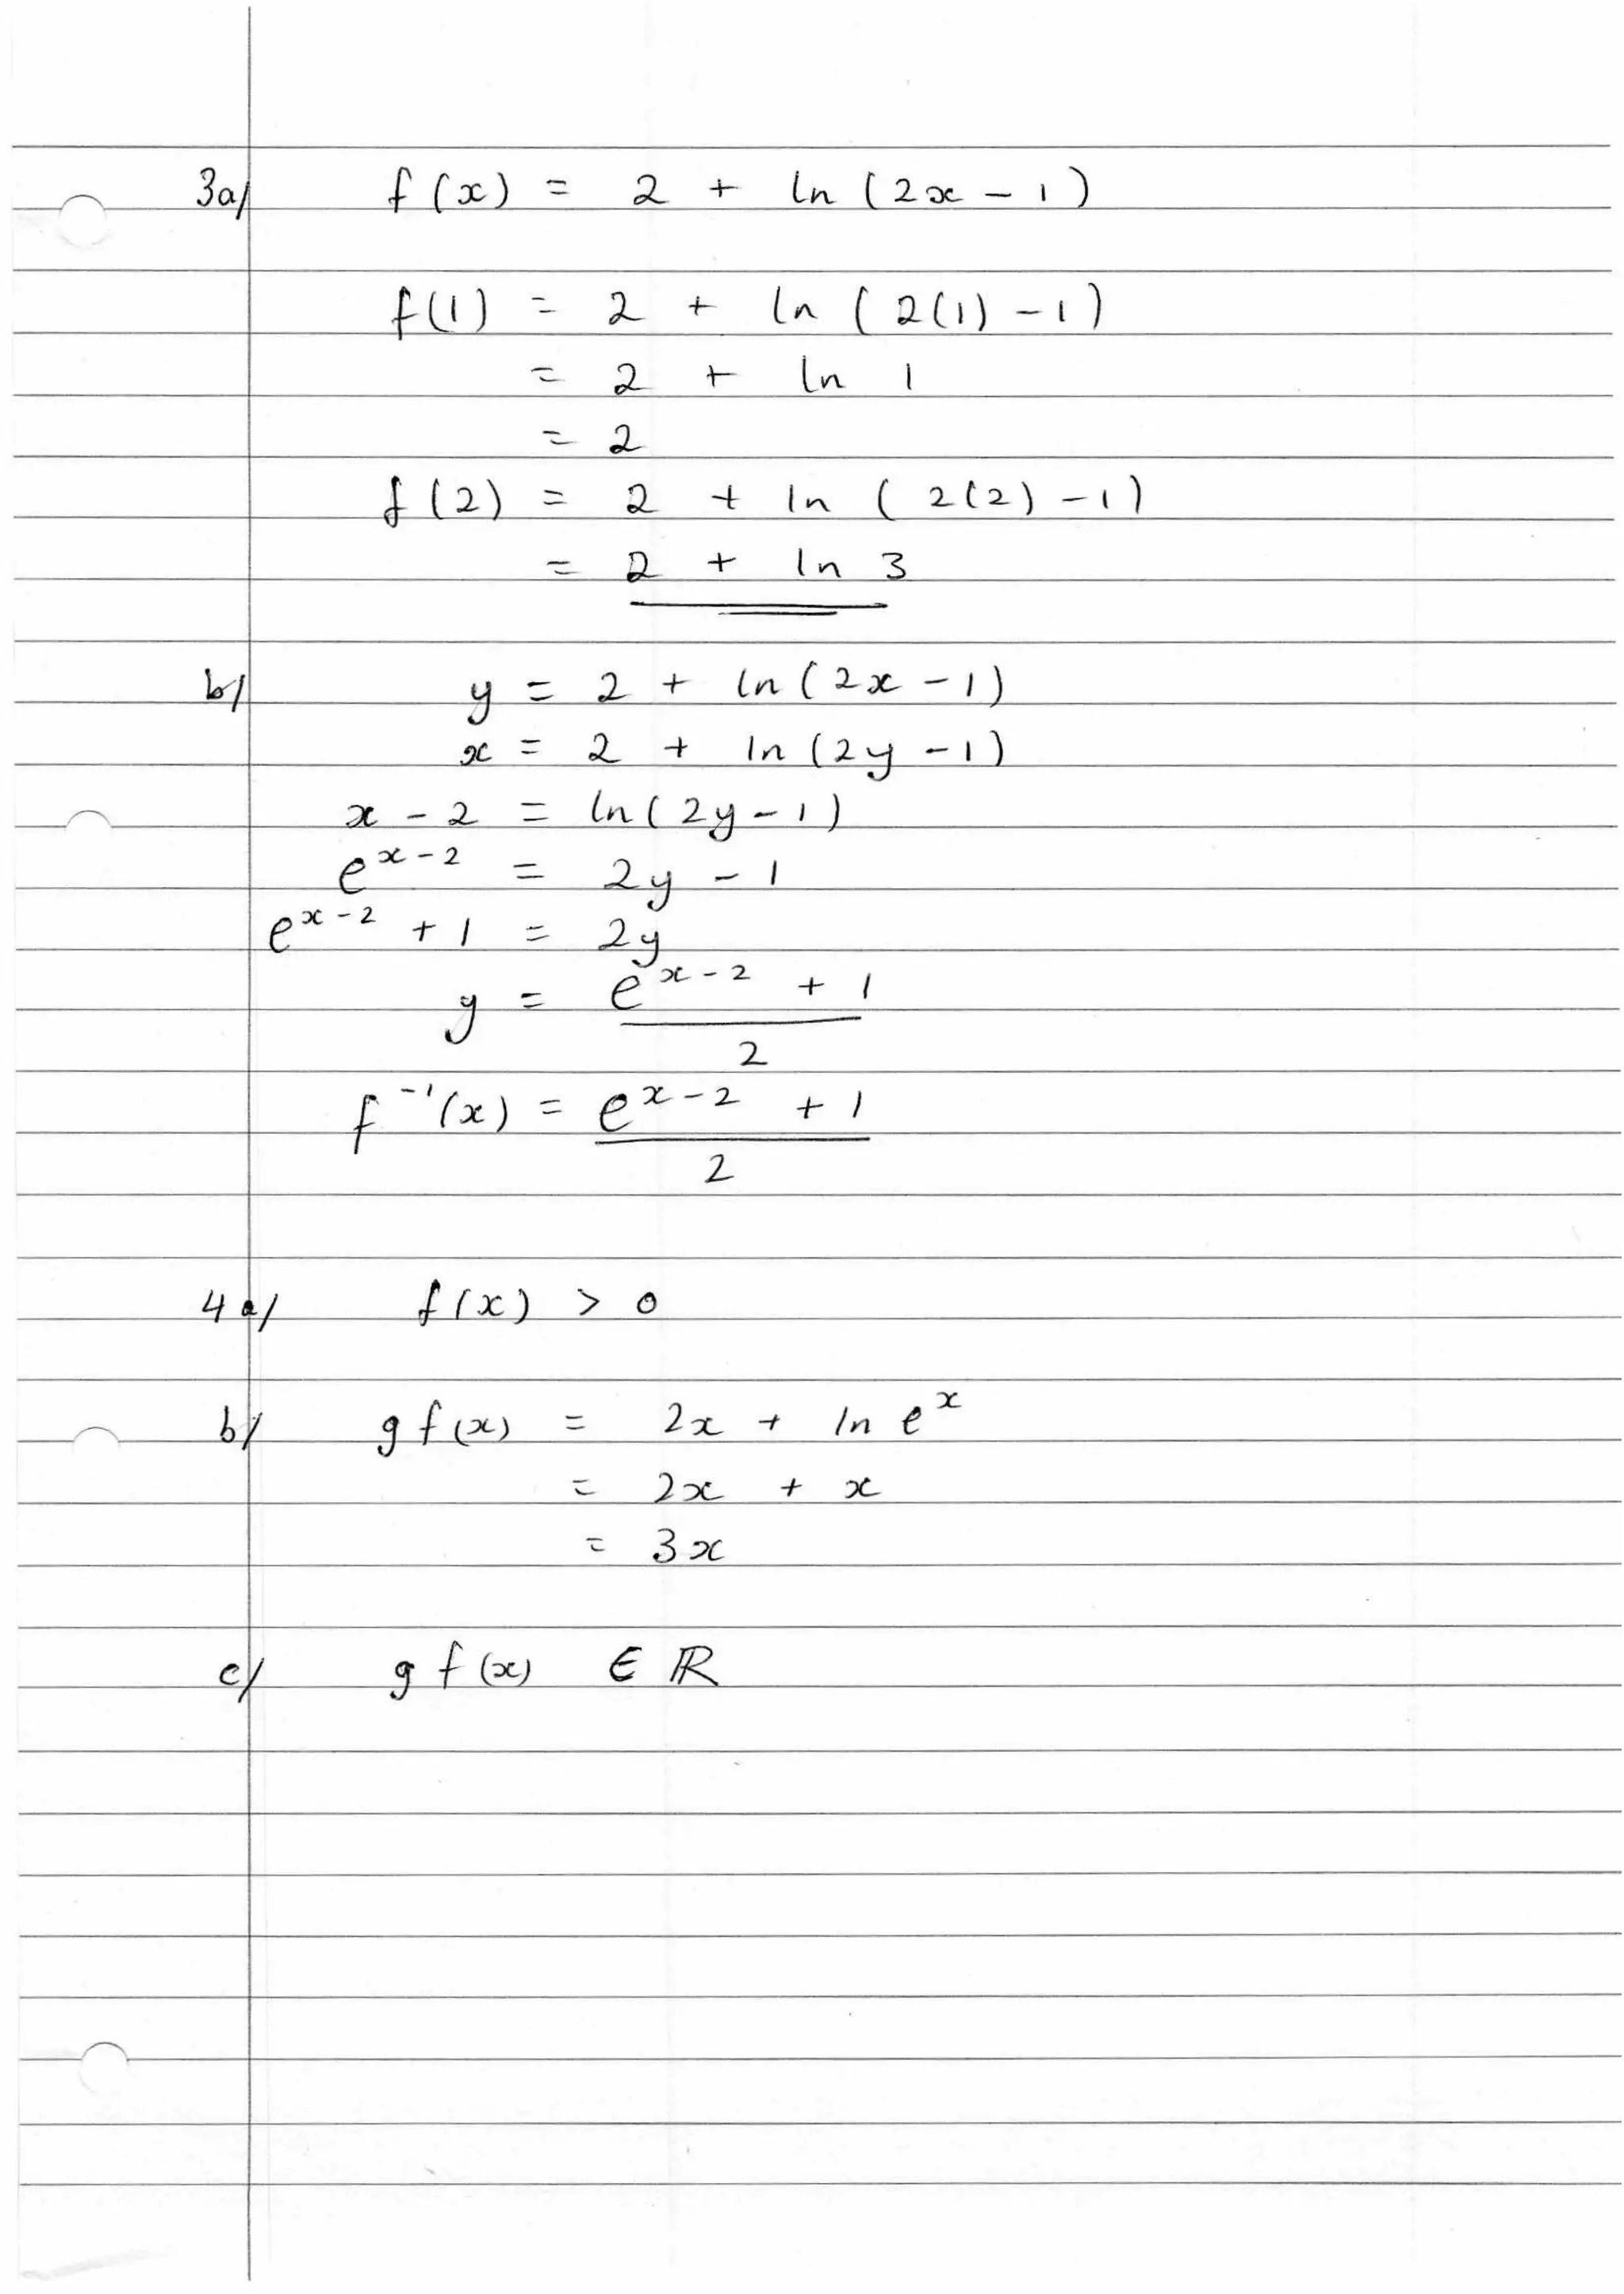 3a/ f(x) = 2 + ln(2x - 1)
f(1) = 2 + ln(2(1) - 1)
= 2 + ln 1
= 2
f(2) = 2 + ln(2(2) - 1)
= 2 + ln 3
b/ y = 2 + ln(2x - 1)
x = 2 + ln(2y - 1)
x - 2 = ln(2y - 1)
e^{x-2} = 2y - 1
e^{x-2} + 1 = 2y
y = \frac{e^{x-2} + 1}{2}
f^{-1}(x) = \frac{e^{x-2} + 1}{2}
4a/ f(x) > 0
b/ gf(x) = 2x + ln e^x
= 2x + x
= 3x
c/ gf(x) ∈ ℝ